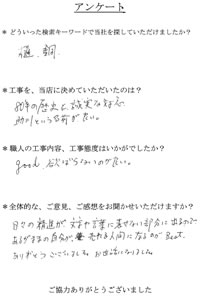 アンケート
＊どういった検索キーワードで当社を探していただけましたか？
樋、銅
＊工事を、当店に決めていただいたのは？
80年の歴史と、誠実な対応
助川という名前がだい。
＊職人の工事内容、工事態度はいかがでしたか？
good、欲ばらないのがだい。
＊全体的な、ご意見、ご感想をお聞かせいただけますか？
日々の精進が 文字や言葉に表せない部分に出るので
あるがままの自分が、売れる人間になるのが Best.
ありがとうございました。お世話になりました。
ご協力ありがとうございました